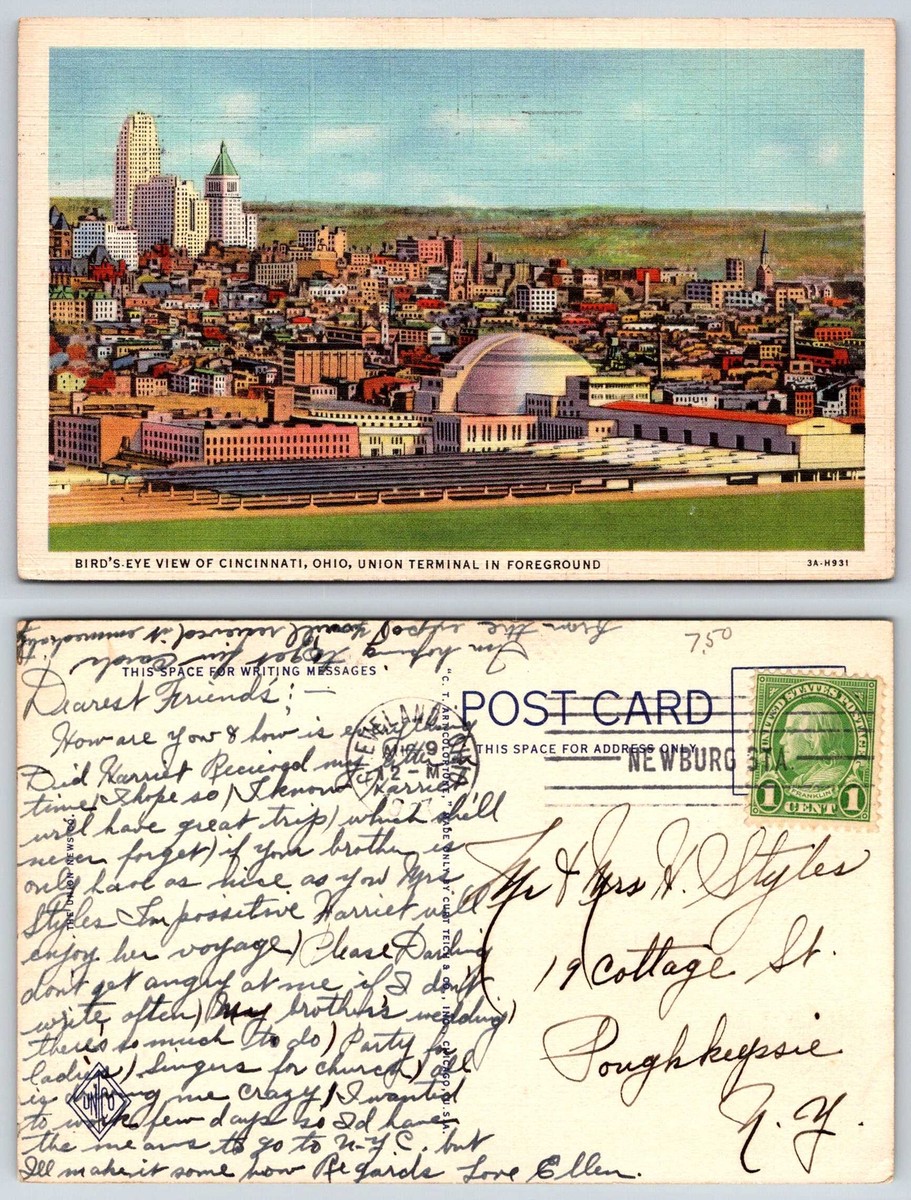 BIRD'S-EYE VIEW OF CINCINNATI, OHIO, UNION TERMINAL IN FOREGROUND
3A-H931
from the
I'm hoping to get
THIS SPACE FOR WRITING MESSAGES
Dearest Friends; —
How are you & how is everything
Did Harriet Recieved my letter
time, I hope so) I know Harriet
will have great trip) which she'll
never forget) if your brother is
only half as nice as you Mrs
Styles I'm possitive Harriet will
enjoy her voyage) Please Darling
don't get angry at me if I don't
write often) My brother's wedding)
there's so much to do) Party for
ladies) Singers for church) all
is driving me crazy) I wanted
to work few days so I'd have
the means to go to N-Y C. but
I'll make it some how Regards Love Ellen.
"C. T. ART-COLORTONE" MADE ONLY BY CURT TEICH & CO., INC., CHICAGO, U.S.A.
7.50
POST CARD
THIS SPACE FOR ADDRESS ONLY
CLEVELAND, OHIO
9
12-M
NEWBURG STA.
UNITED STATES POSTAGE
FRANKLIN
1 CENT 1
Mr & Mrs H. Styles
19 Cottage St.
Poughkeepsie
N. Y.